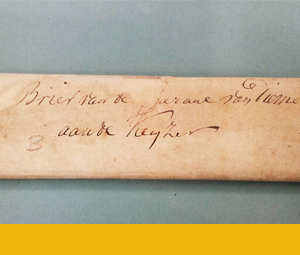 Brief van de van
B aan de Keyzer